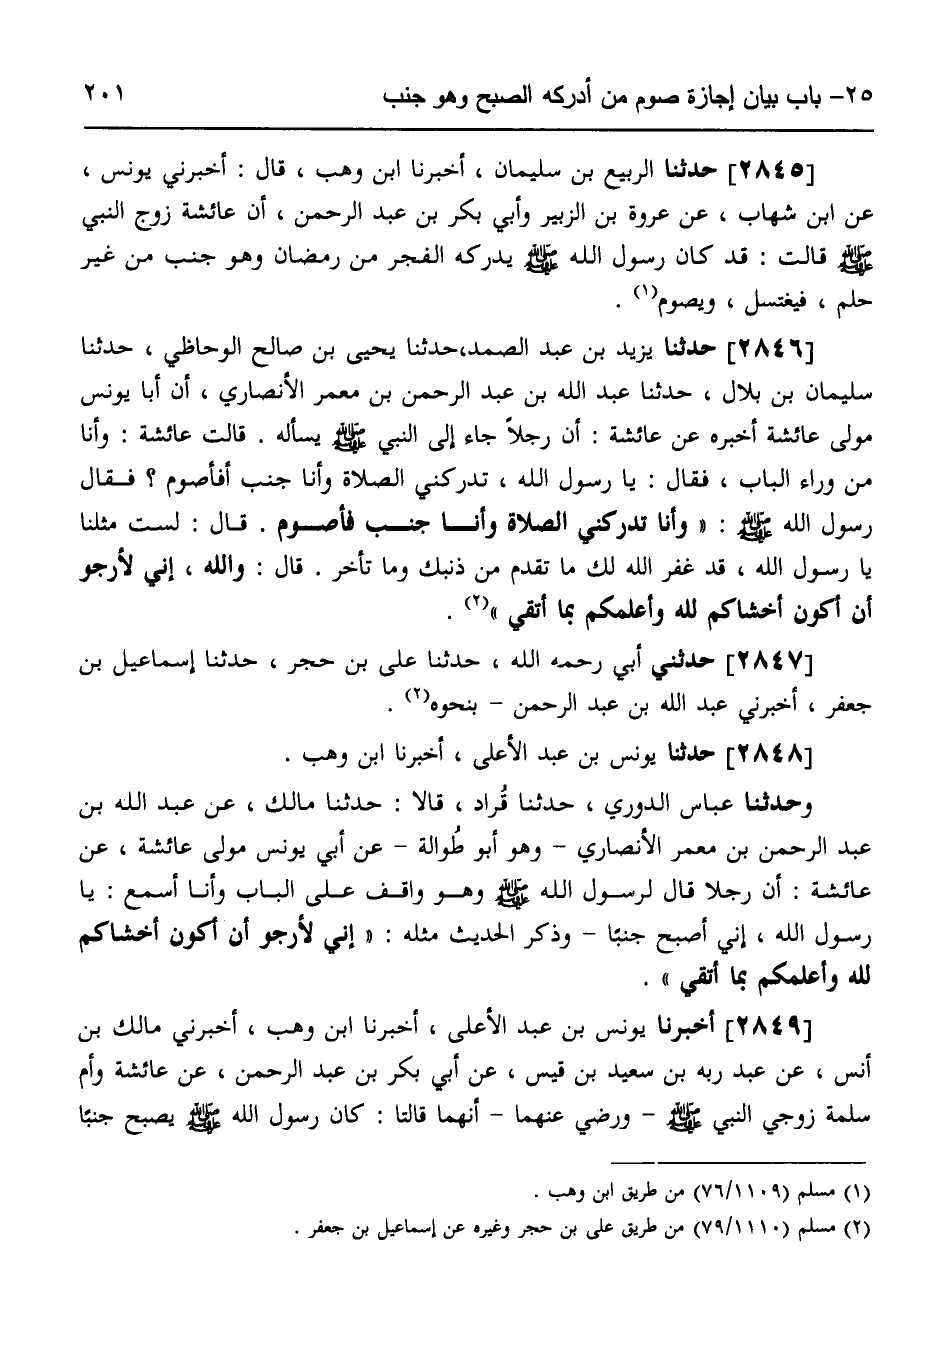 ٢٥- باب بيان إجازة صوم من أدركه الصبح وهو جنب ٢٠١
[٢٨٤٥] حدثنا الربيع بن سليمان ، أخبرنا ابن وهب ، قال : أخبرني يونس ،
عن ابن شهاب ، عن عروة بن الزبير وأبي بكر بن عبد الرحمن ، أن عائشة زوج النبي
ﷺ قالت : قد كان رسول الله ﷺ يدركه الفجر من رمضان وهو جنب من غير
حلم ، فيغتسل ، ويصوم(١) .
[٢٨٤٦] حدثنا يزيد بن عبد الصمد،حدثنا يحيى بن صالح الوحاظي ، حدثنا
سليمان بن بلال ، حدثنا عبد الله بن عبد الرحمن بن معمر الأنصاري ، أن أبا يونس
مولى عائشة أخبره عن عائشة : أن رجلاً جاء إلى النبي ﷺ يسأله . قالت عائشة : وأنا
من وراء الباب ، فقال : يا رسول الله ، تدركني الصلاة وأنا جنب أفأصوم ؟ فـقال
رسول الله ﷺ : « وأنا تدركني الصلاة وأنـــا جنـــب فأصـــوم . قـال : لست مثلنا
يا رسـول الله ، قد غفر الله لك ما تقدم من ذنبك وما تأخر . قال : والله ، إني لأرجو
أن أكون أخشاكم لله وأعلمكم بما أتقي »(٢) .
[٢٨٤٧] حدثني أبي رحمه الله ، حدثنا على بن حجر ، حدثنا إسماعيل بن
جعفر ، أخبرني عبد الله بن عبد الرحمن – بنحوه(٢) .
[٢٨٤٨] حدثنا يونس بن عبد الأعلى ، أخبرنا ابن وهب .
وحدثنا عباس الدوري ، حدثنا قُراد ، قالا : حدثنا مالك ، عن عبد الله بن
عبد الرحمن بن معمر الأنصاري – وهو أبو طُوالة – عن أبي يونس مولى عائشة ، عن
عائشة : أن رجلا قال لرسـول الله ﷺ وهـو واقـف علـى البـاب وأنـا أسمع : يا
رسـول الله ، إني أصبح جنبًا – وذكر الحديث مثله : « إني لأرجو أن أكون أخشاكم
لله وأعلمكم بما أتقي » .
[٢٨٤٩] أخبرنا يونس بن عبد الأعلى ، أخبرنا ابن وهب ، أخبرني مالك بن
أنس ، عن عبد ربه بن سعيد بن قيس ، عن أبي بكر بن عبد الرحمن ، عن عائشة وأم
سلمة زوجي النبي ﷺ – ورضي عنهما – أنهما قالتا : كان رسول الله ﷺ يصبح جنبًا
(١) مسلم (٧٦/١١٠٩) من طريق ابن وهب .
(٢) مسلم (٧٩/١١١٠) من طريق على بن حجر وغيره عن إسماعيل بن جعفر .